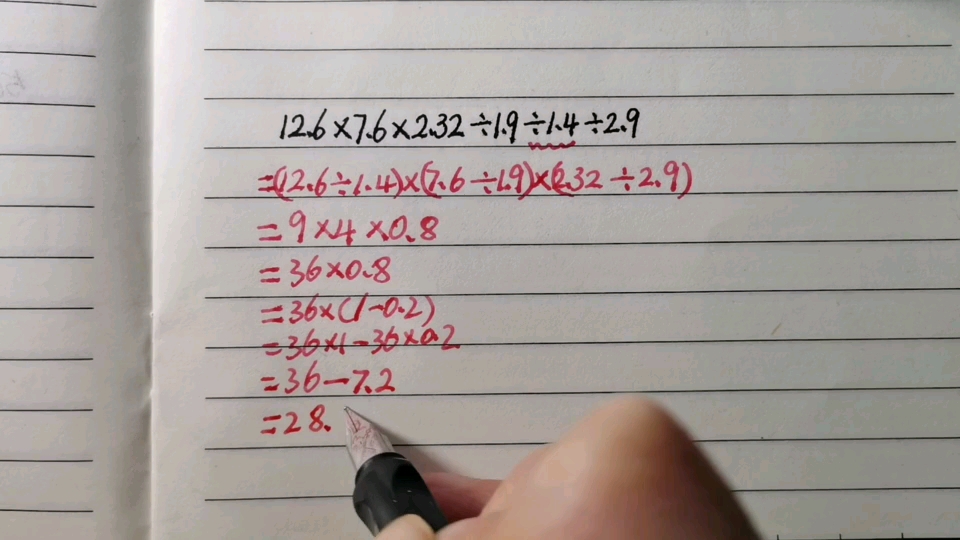 12.6×7.6×2.32÷1.9÷1.4÷2.9
=(12.6÷1.4)×(7.6÷1.9)×(2.32÷2.9)
=9×4×0.8
=36×0.8
=36×(1-0.2)
=36×1-36×0.2
=36-7.2
=28.